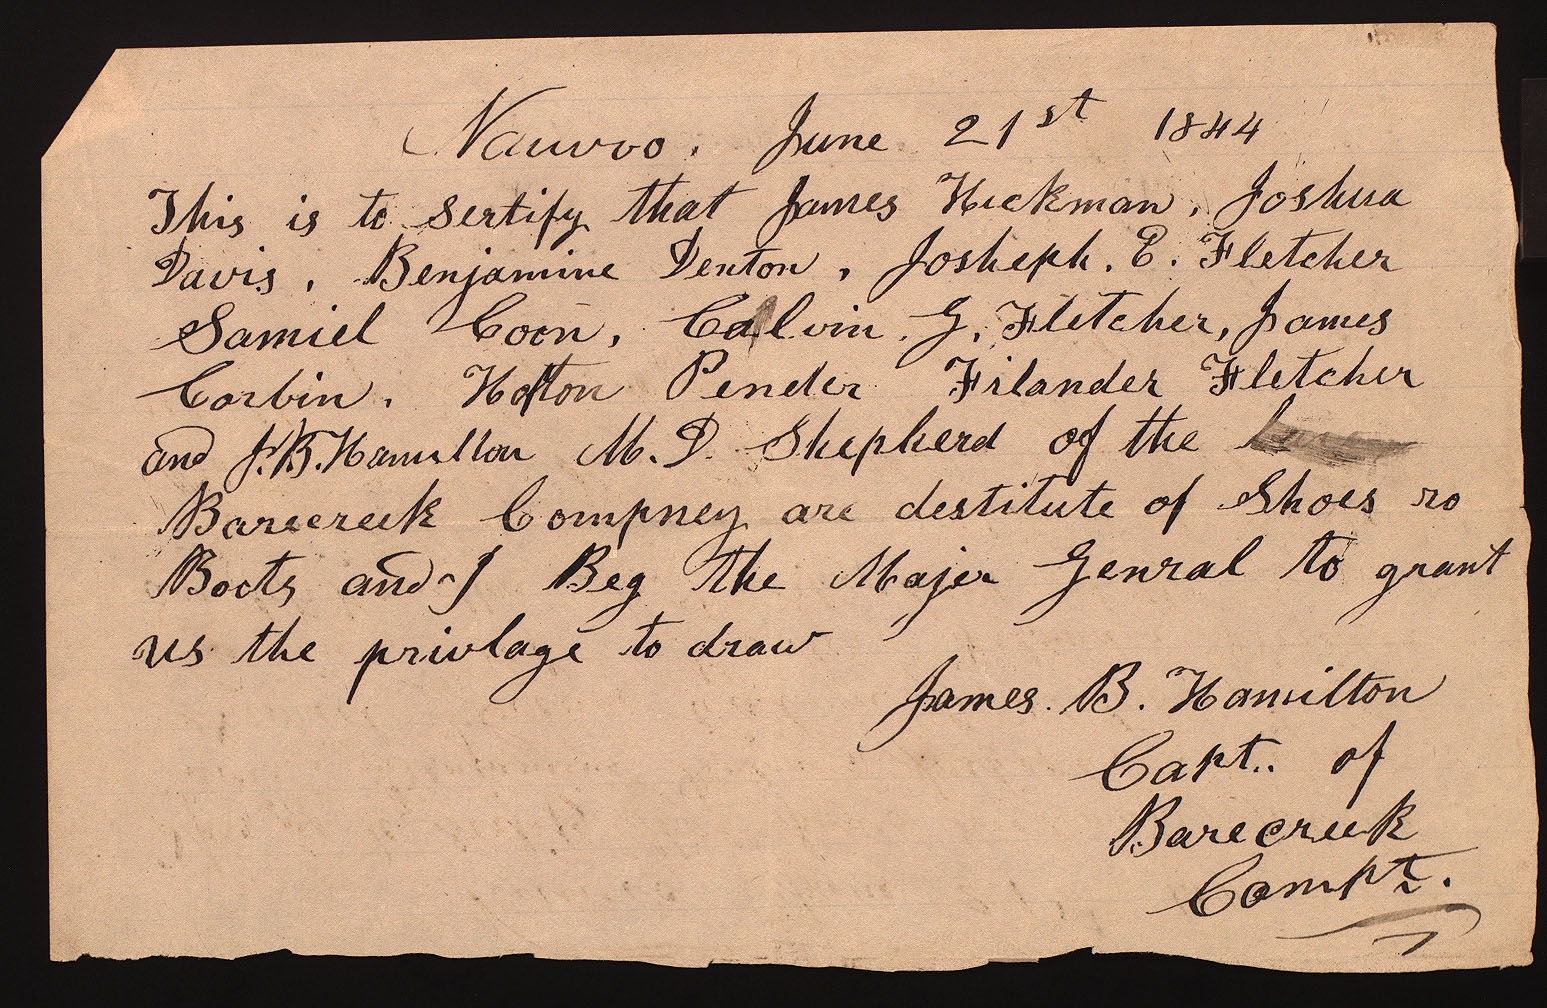 Nauvoo. June 21st 1844
This is to sertify that James Hickman, Joshua
Davis, Benjamine Denton, Josheph. E. Fletcher
Samiel Coon, Calvin. G. Fletcher, James
Corbin. Hofton Pender Filander Fletcher
and J.B. Hamilton M. D. Shepherd of the
Barecreek Compney are destitute of Shoes ro
Boots and I Beg the Majer Genral to grant
us the privlage to draw
James. B. Hamilton
Capt.. of
Barecreek
Compt.